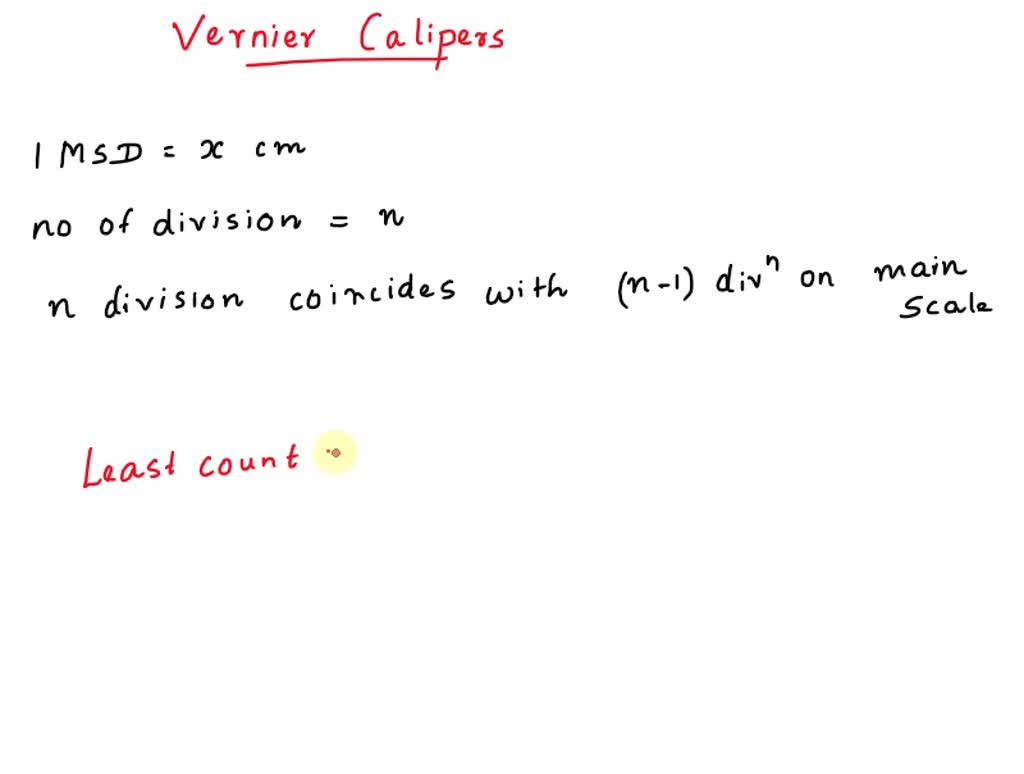 Vernier Calipers
1 MSD = x cm
no of division = n
n division coincides with (n-1) divⁿ on main scale
Least count